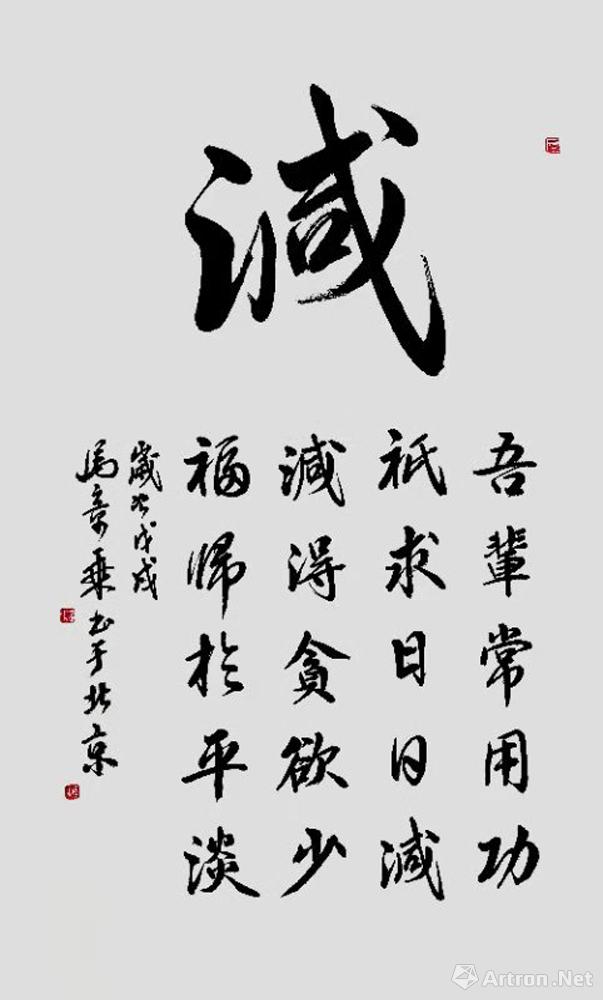 減
吾輩常用功
祇求日日減
減得貪欲少
福帰於平淡
歲次戊戌
馬章乘书于北京
Artron.Net